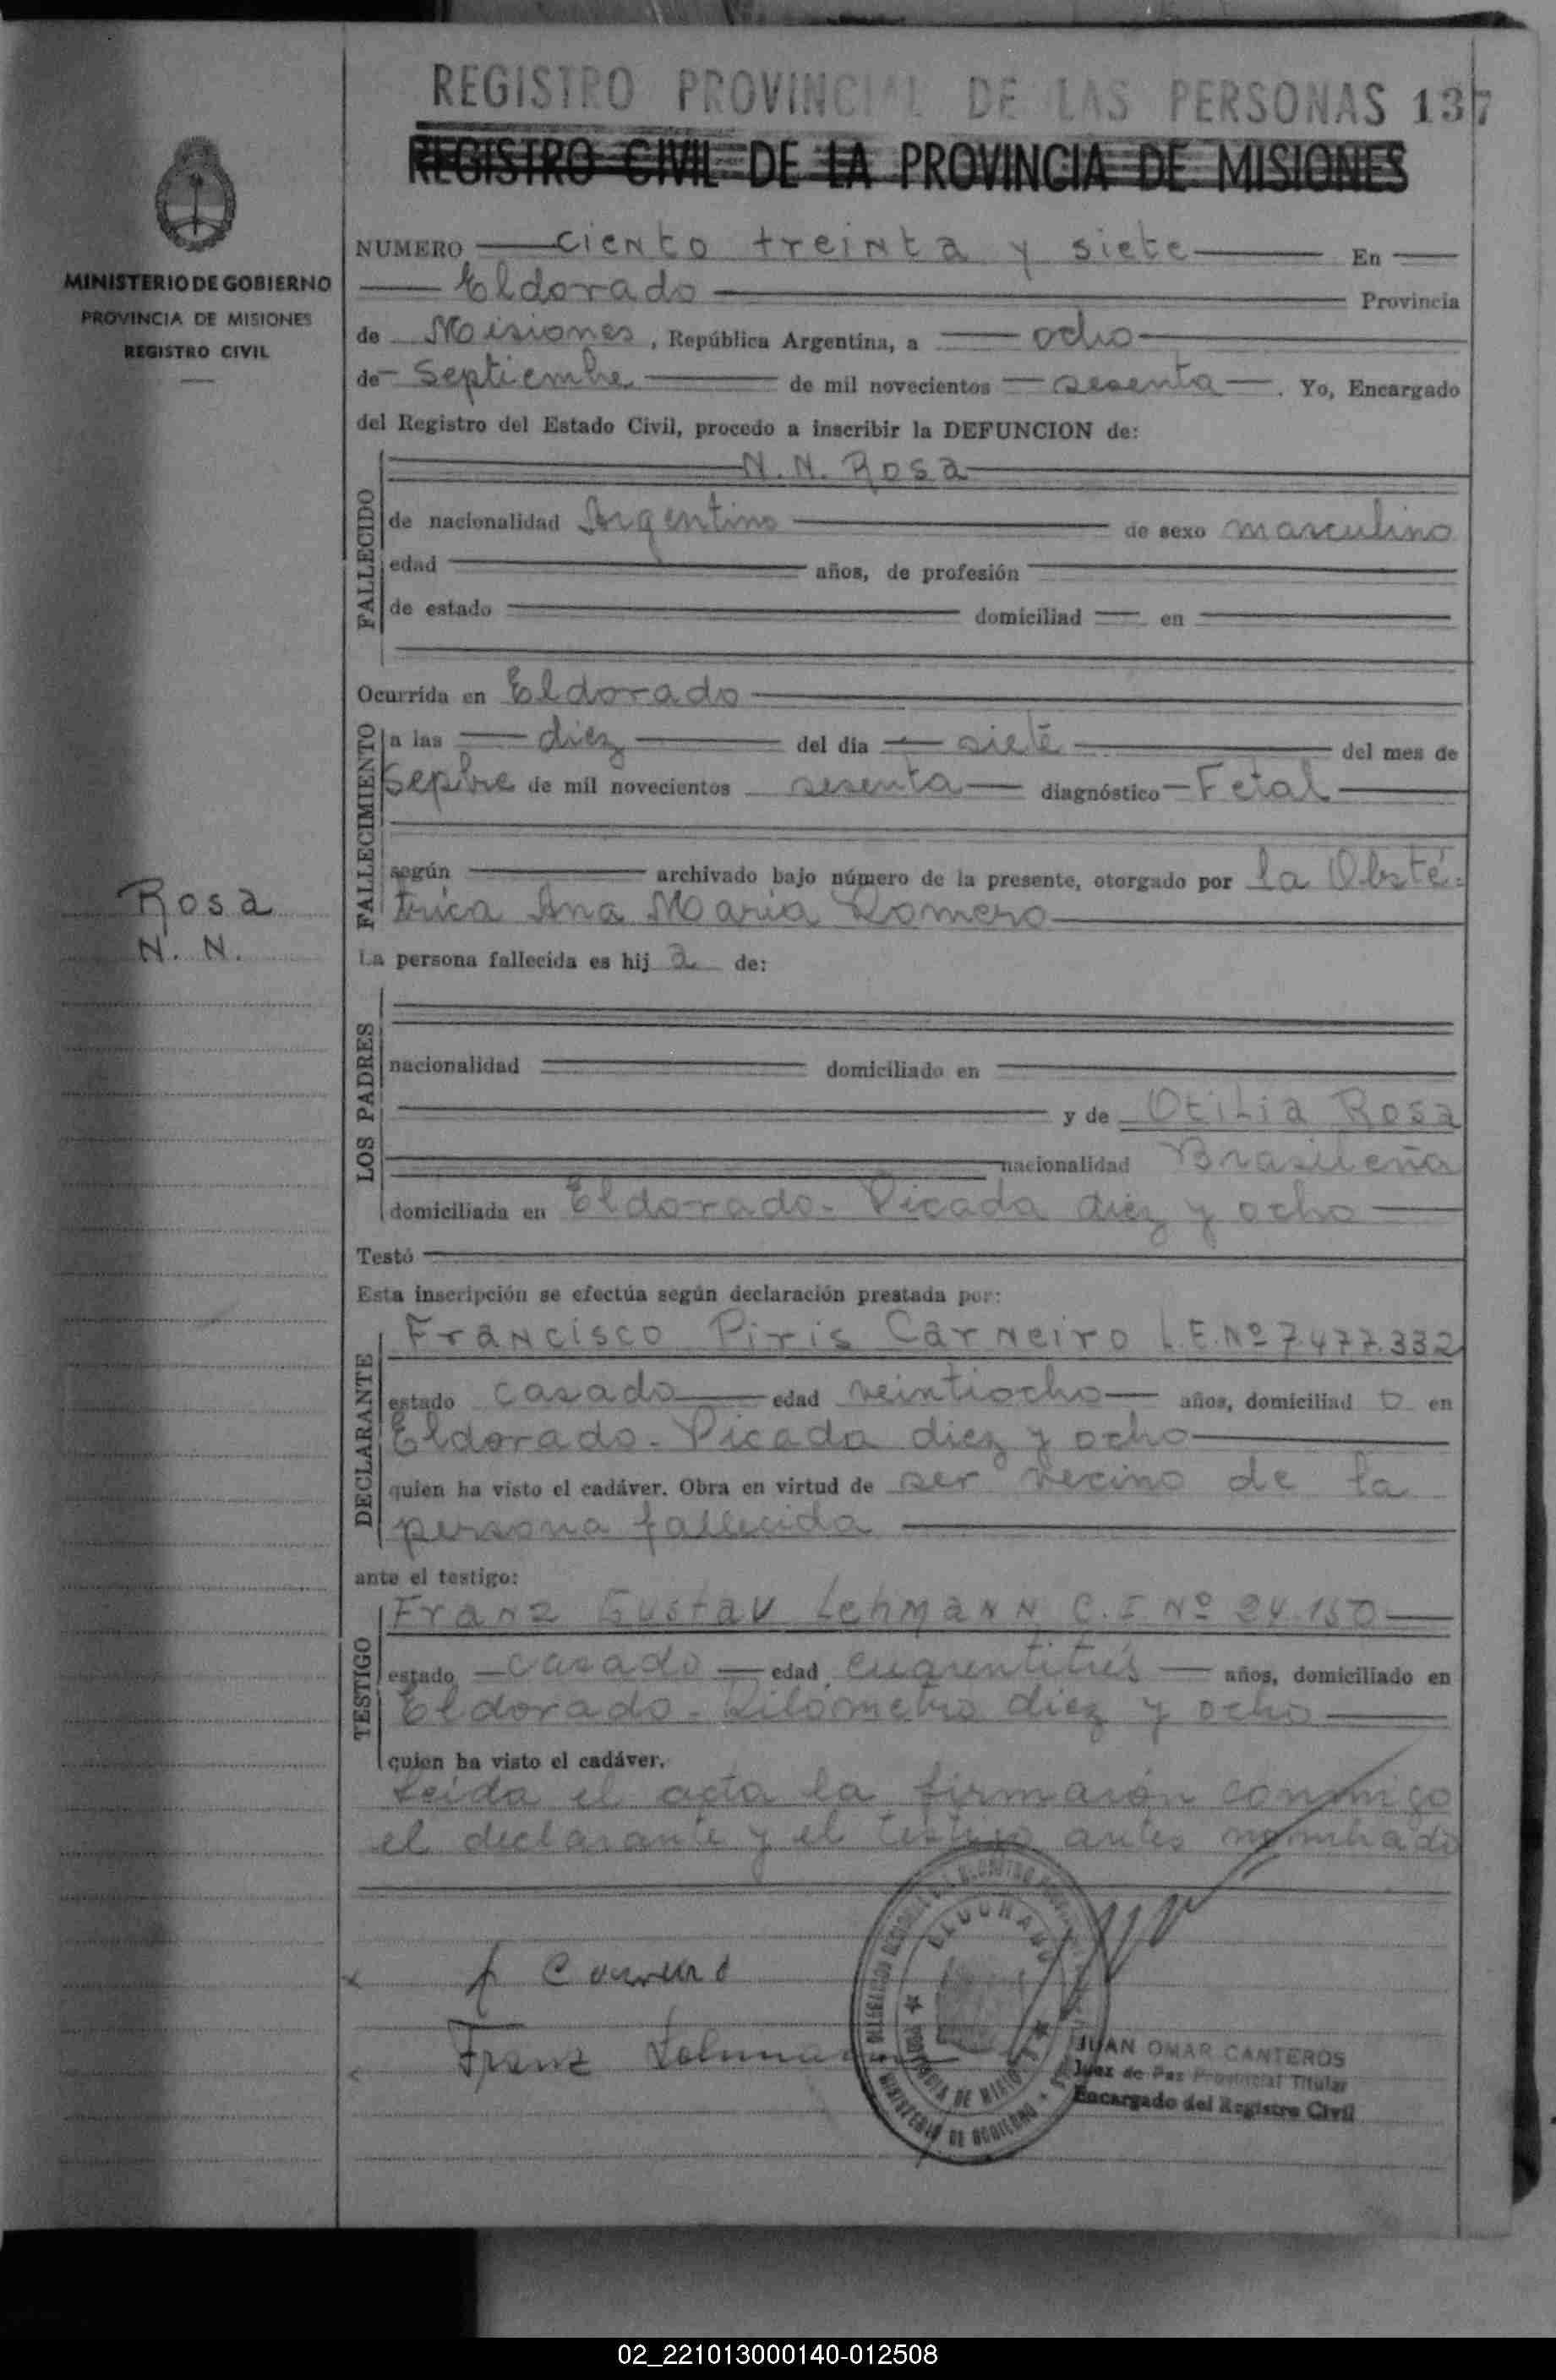 REGISTRO PROVINCIAL DE LAS PERSONAS 137
REGISTRO CIVIL DE LA PROVINCIA DE MISIONES
MINISTERIO DE GOBIERNO
PROVINCIA DE MISIONES
REGISTRO CIVIL
NUMERO ciento treinta y siete En
Eldorado Provincia
de Misiones, República Argentina, a ocho
de Septiembre de mil novecientos sesenta. Yo, Encargado
del Registro del Estado Civil, procedo a inscribir la DEFUNCION de:
N. N. Rosa
FALLECIDO
de nacionalidad Argentino de sexo masculino
edad años, de profesión
de estado domiciliad en
Ocurrida en Eldorado
FALLECIMIENTO
a las diez del dia siete del mes de
Sepbre de mil novecientos sesenta diagnóstico Fetal
según archivado bajo número de la presente, otorgado por la Obsté-
trica Ana Maria Romero
Rosa
N. N.
La persona fallecida es hij a de:
LOS PADRES
nacionalidad domiciliado en
y de Otilia Rosa
nacionalidad Brasileña
domiciliada en Eldorado - Picada diez y ocho
Testó
Esta inscripción se efectúa según declaración prestada por:
DECLARANTE
Francisco Piris Carneiro L.E. Nº 7.477.332
estado casado edad veintiocho años, domiciliad o en
Eldorado - Picada diez y ocho
quien ha visto el cadáver. Obra en virtud de ser vecino de la
persona fallecida
ante el testigo:
TESTIGO
Franz Gustav Lehmann C. I Nº 24.150
estado casado edad cuarentitrés años, domiciliado en
Eldorado - Kilómetro diez y ocho
quien ha visto el cadáver.
Leida el acta la firmarón conmigo
el declarante y el testigo antes nombrado
f Carneiro
Franz Lehmann
ELDORADO
PROVINCIA DE MISIONES
MINISTERIO DE GOBIERNO
JUAN OMAR CANTEROS
Juez de Paz Provincial Titular
Encargado del Registro Civil
02_221013000140-012508